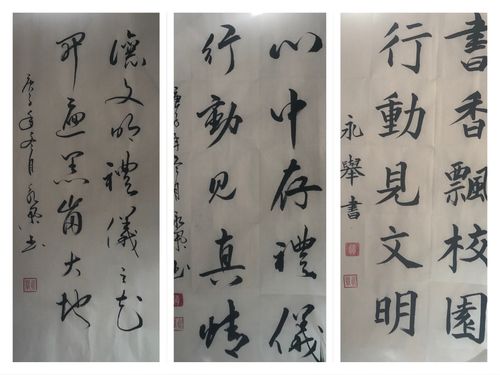 讓文明禮儀之花
開遍黑崗大地
庚子年冬月永舉书
心中存禮儀
行動見真情
庚子年冬月永舉书
書香飄校園
行動見文明
永舉書